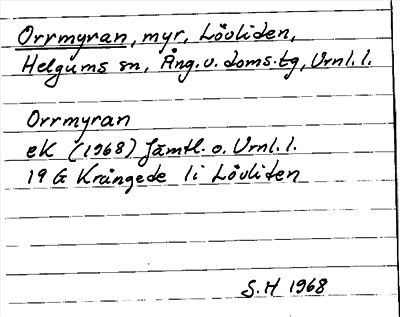 Orrmyran, myr, Lövliden,
Helgums sn, Ång. v. doms. tg, Vrnl. l.
Orrmyran
eK (1968) Jämtl. o. Vrnl. l.
19 G Krångede 1i Lövliden
S.H 1968